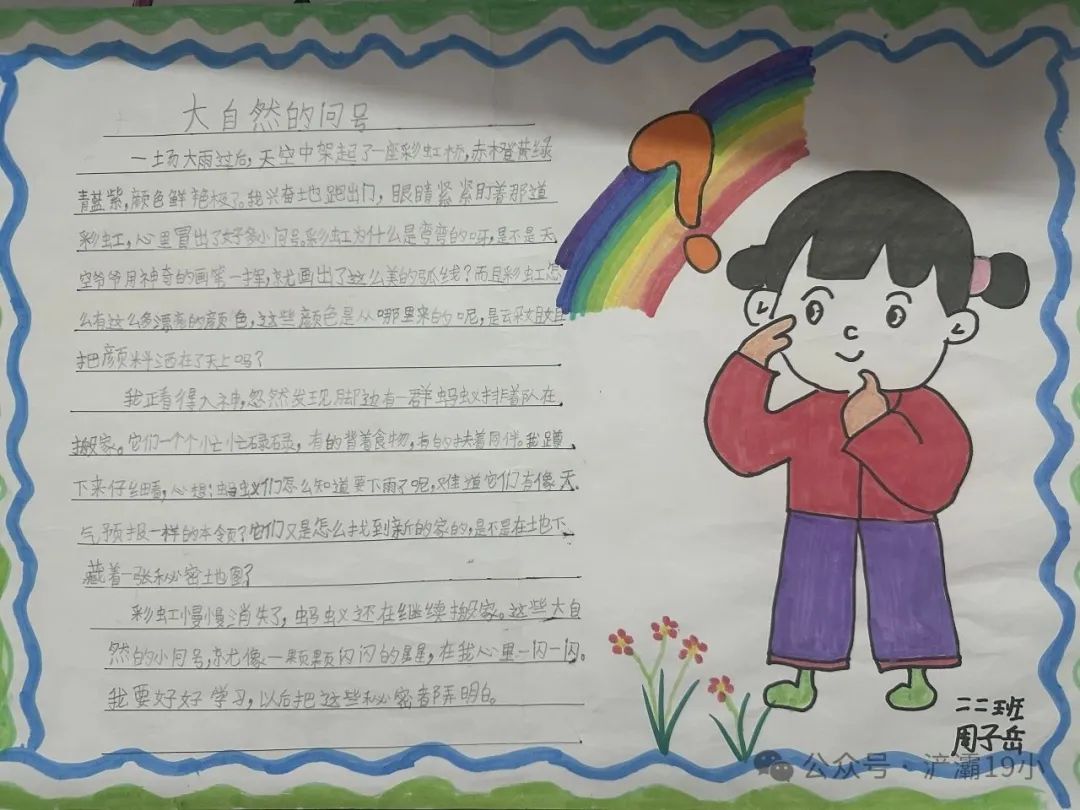 大自然的问号
一场大雨过后,天空中架起了一座彩虹桥,赤橙黄绿
青蓝紫,颜色鲜艳极了。我兴奋地跑出门,眼睛紧紧盯着那道
彩虹,心里冒出了好多小问号。彩虹为什么是弯弯的呀,是不是天
空爷爷用神奇的画笔一挥,就画出了这么美的弧线?而且彩虹怎
么有这么多漂亮的颜色,这些颜色是从哪里来的呢,是云朵姐姐
把颜料洒在了天上吗?
我正看得入神,忽然发现脚边有一群蚂蚁排着队在
搬家。它们一个个忙忙碌碌,有的背着食物,有的扶着同伴。我蹲
下来仔细看,心想:蚂蚁们怎么知道要下雨了呢,难道它们有像天
气预报一样的本领?它们又是怎么找到新的家的,是不是在地下
藏着一张秘密地图?
彩虹慢慢消失了,蚂蚁还在继续搬家。这些大自
然的小问号,就像一颗颗闪闪的星星,在我心里一闪一闪。
我要好好学习,以后把这些秘密都弄明白。
?
二二班
周子岳
公众号·浐灞19小